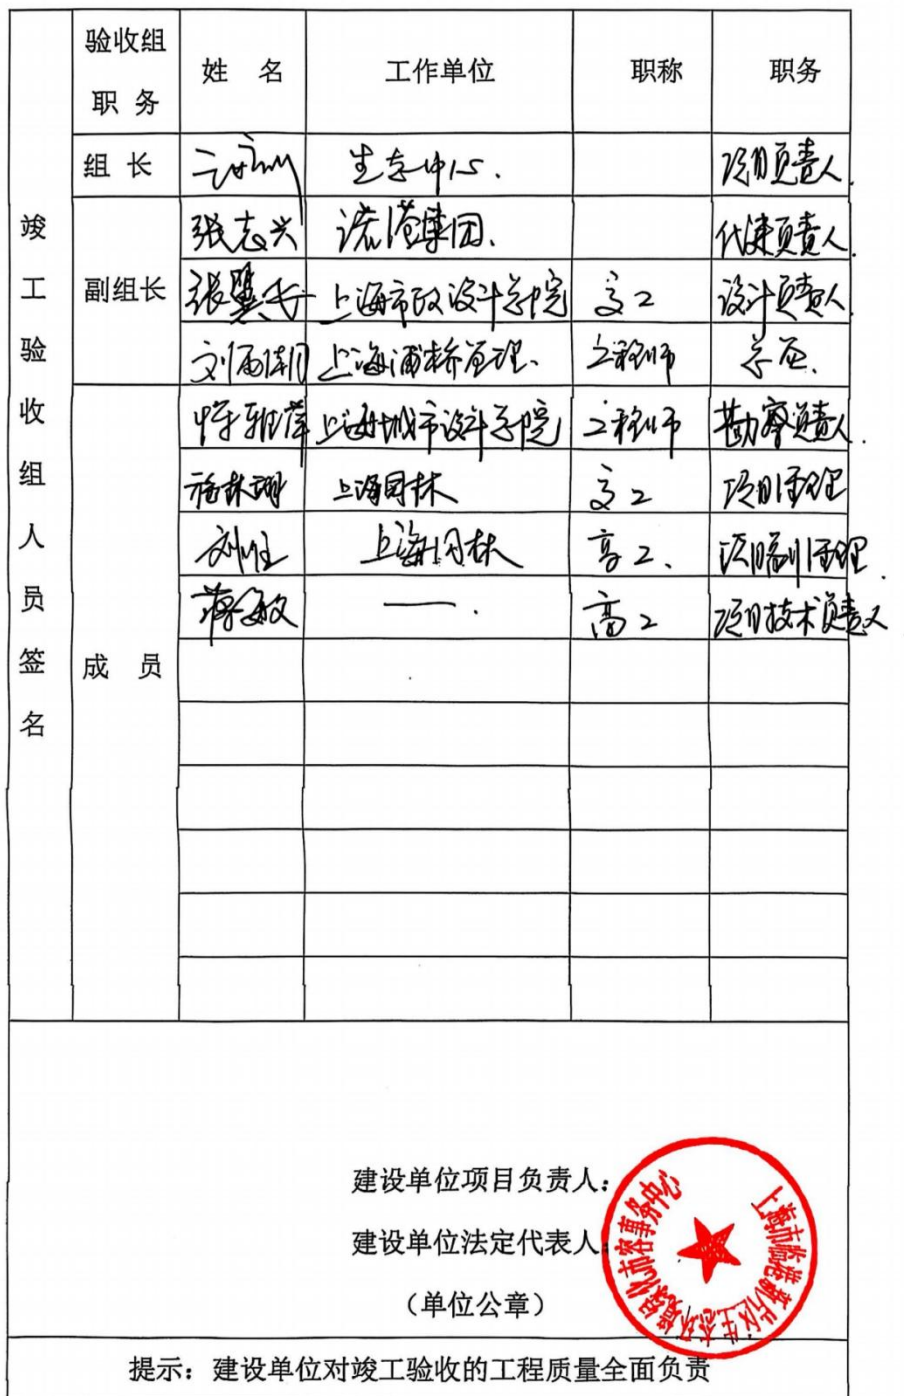 竣工验收组人员签名
验收组职务 姓 名 工作单位 职称 职务
组 长 生态中心. 项目负责人.
副组长
张志兴 港集团. 代建负责人.
张翼 上海市政设计总院 高工 设计负责人.
刘 上海浦桥监理. 工程师 总监.
成 员
恽雅萍 上海城市设计总院 工程师 勘察负责人.
林翊 上海园林 高工 项目经理
刘 上海园林 高工. 项目副经理.
蒋敏 —. 高工 项目技术负责人
建设单位项目负责人:
建设单位法定代表人:
(单位公章)
上海市临港新片区生态环境绿化市容事务中心
提示:建设单位对竣工验收的工程质量全面负责